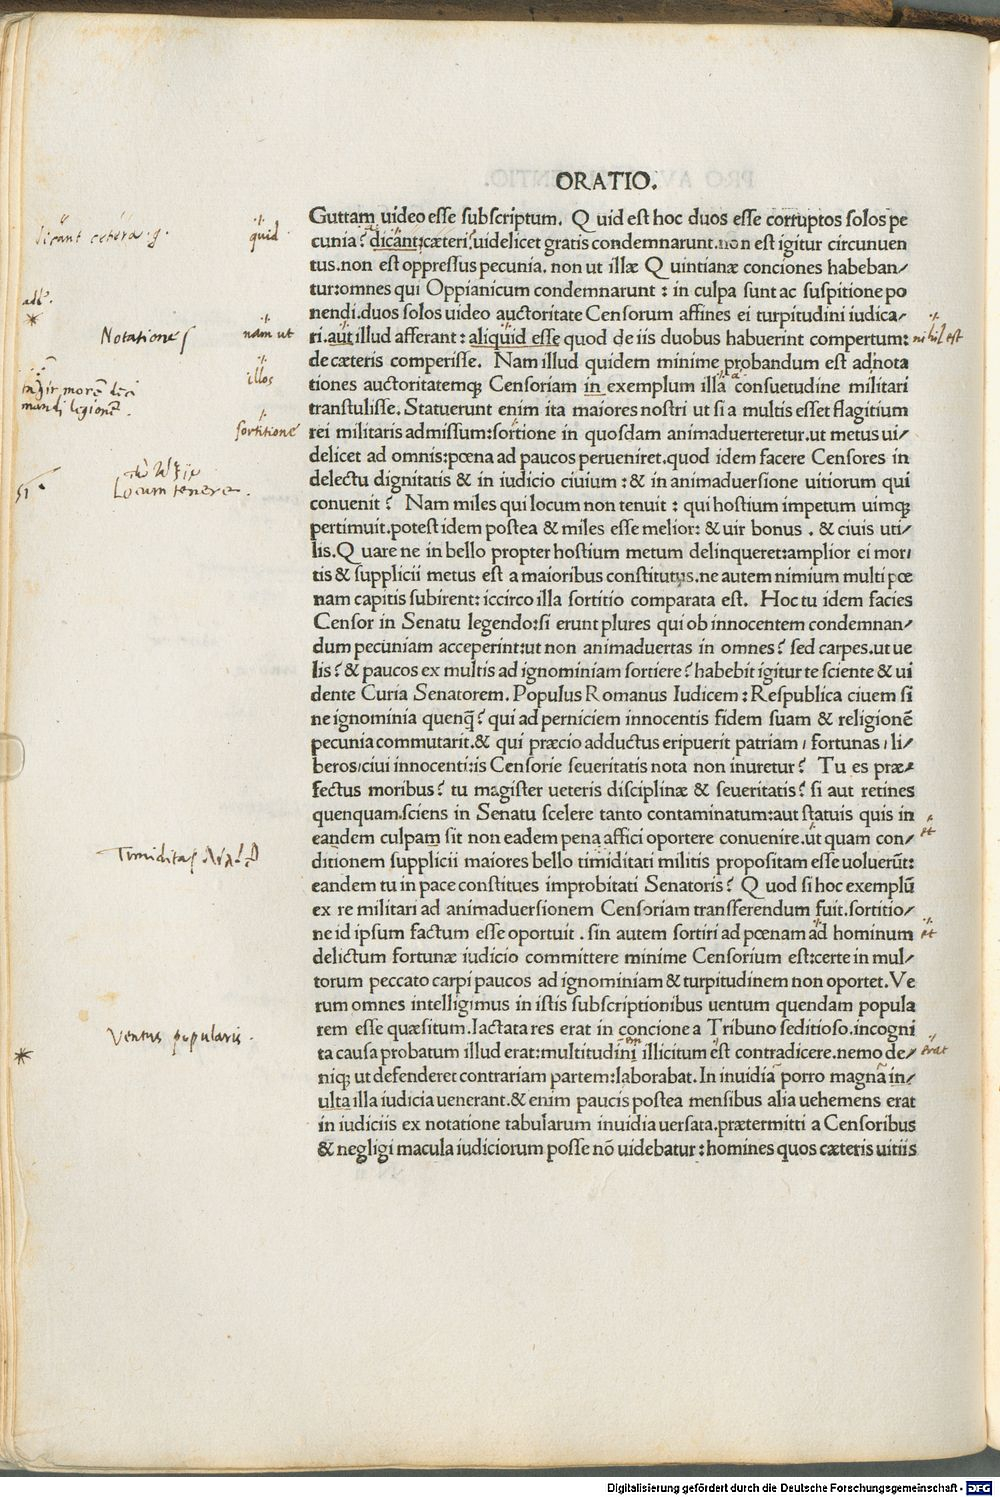 ORATIO.
Guttam uideo esse subscriptum. Quid est hoc duos esse corruptos solos pe
cunia? dicant cæteri uidelicet gratis condemnarunt.non est igitur circunuen
tus.non est oppressus pecunia. non ut illæ Quintianæ conciones habeban/
tur:omnes qui Oppianicum condemnarunt: in culpa sunt ac suspitione po
nendi.duos solos uideo auctoritate Censorum affines ei turpitudini iudica/
ri.aut illud afferant: aliquid esse quod de iis duobus habuerint compertum:
de cæteris comperisse. Nam illud quidem minime probandum est adnota
tiones auctoritatemq; Censoriam in exemplum illa consuetudine militari
transtulisse. Statuerunt enim ita maiores nostri ut si a multis esset flagitium
rei militaris admissum:sortione in quosdam animaduerteretur.ut metus ui/
delicet ad omnis:pœna ad paucos perueniret.quod idem facere Censores in
delectu dignitatis & in iudicio ciuium:& in animaduersione uitiorum qui
conuenit? Nam miles qui locum non tenuit: qui hostium impetum uimq;
pertimuit.potest idem postea & miles esse melior: & uir bonus. & ciuis uti/
lis.Quare ne in bello propter hostium metum delinqueret:amplior ei mor/
tis & supplicii metus est a maioribus constitutus.ne autem nimium multi pœ
nam capitis subirent: iccirco illa sortitio comparata est. Hoc tu idem facies
Censor in Senatu legendo:si erunt plures qui ob innocentem condemnan/
dum pecuniam acceperint:ut non animaduertas in omnes? sed carpes.ut ue
lis? & paucos ex multis ad ignominiam sortiere? habebit igitur te sciente & ui
dente Curia Senatorem. Populus Romanus Iudicem: Respublica ciuem si
ne ignominia quenq̃? qui ad perniciem innocentis fidem suam & religionē
pecunia commutarit.& qui præcio adductus eripuerit patriam/ fortunas/ li/
beros/ciui innocenti:is Censorie seueritatis nota non inuretur? Tu es præ/
fectus moribus? tu magister ueteris disciplinæ & seueritatis? si aut retines
quenquam.sciens in Senatu scelere tanto contaminatum:aut statuis quis in
eandem culpam sit non eadem pena affici oportere conuenire.ut quam con/
ditionem supplicii maiores bello timiditati militis propositam esse uoluerūt:
eandem tu in pace constitues improbitati Senatoris? Quod si hoc exemplū
ex re militari ad animaduersionem Censoriam transferendum fuit.sortitio/
ne id ipsum factum esse oportuit. sin autem sortiri ad pœnam ad hominum
delictum fortunæ iudicio committere minime Censorium est:certe in mul/
torum peccato carpi paucos ad ignominiam & turpitudinem non oportet. Ve
rum omnes intelligimus in istis subscriptionibus uentum quendam popula
rem esse quæsitum. Iactata res erat in concione a Tribuno seditioso.incogni
ta causa probatum illud erat:multitudini illicitum est contradicere.nemo de/
niq; ut defenderet contrariam partem:laborabat. In inuidia porro magna in/
ulta illa iudicia uenerant.& enim paucis postea mensibus alia uehemens erat
in iudiciis ex notatione tabularum inuidia uersata.prætermitti a Censoribus
& negligi macula iudiciorum posse nō uidebatur:homines quos cæteris uitiis
quid
Notationes
nam ut
nihil est
illos
sortitione
Locum tenere.
et
Timiditas
et
Ventus popularis.
erat
Digitalisierung gefördert durch die Deutsche Forschungsgemeinschaft - DFG